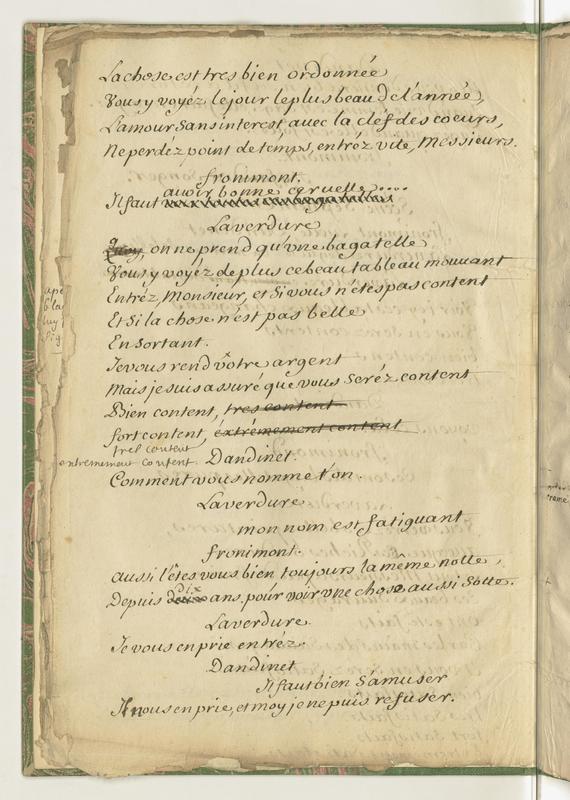 La chose est tres bien ordonnée
Vous y voyéz le jour le plus beau de l'année,
L'amour sans interest, avec la cléf des coeurs,
Ne perdéz point de temps, entréz vite, Messieurs.
fronimont.
avoir bonne ceruelle....
Il faut
Laverdure
on ne prend qu'vne bagatelle
Vous y voyéz de plus ce beau tableau mouuant
Entréz, Monsieur, et si vous n'étes pas content
Et si la chose n'est pas belle
En sortant.
Je vous rend vôtre argent
Mais je suis assuré que vous seréz content
Bien content, tres content
fort content, éxtrémement content
tres content
extremement content. Dandinet.
Comment vous nomme t'on.
Laverdure
mon nom est fatiguant
fronimont.
aussi l'êtes vous bien toujours la même notte,
dix
Depuis deux ans, pour voir vne chose aussi sotte.
Laverdure
Je vous en prie entréz.
Dandinet
Il faut bien s'amuser
Il nous en prie, et moy je ne puis refuser.